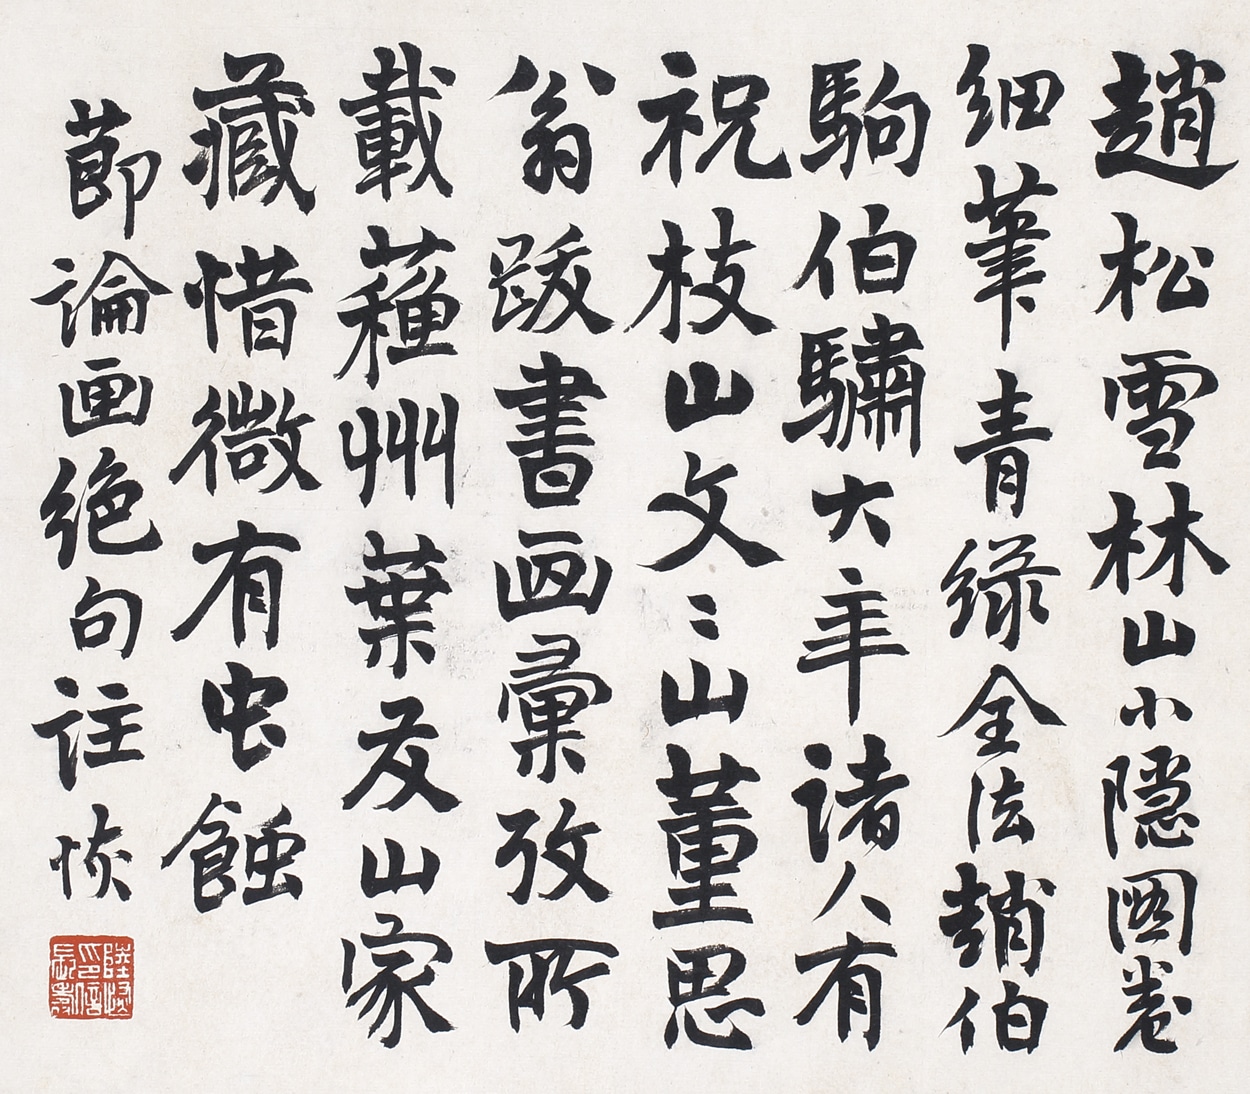 趙松雪林山小隱圖卷
細筆青緑全法趙伯
駒伯驌大年諸人有
祝枝山文〻山董思
翁跋書画彙攷所
載蘓州葉友山家
藏惜微有虫蝕
莭論画絶句註 恢